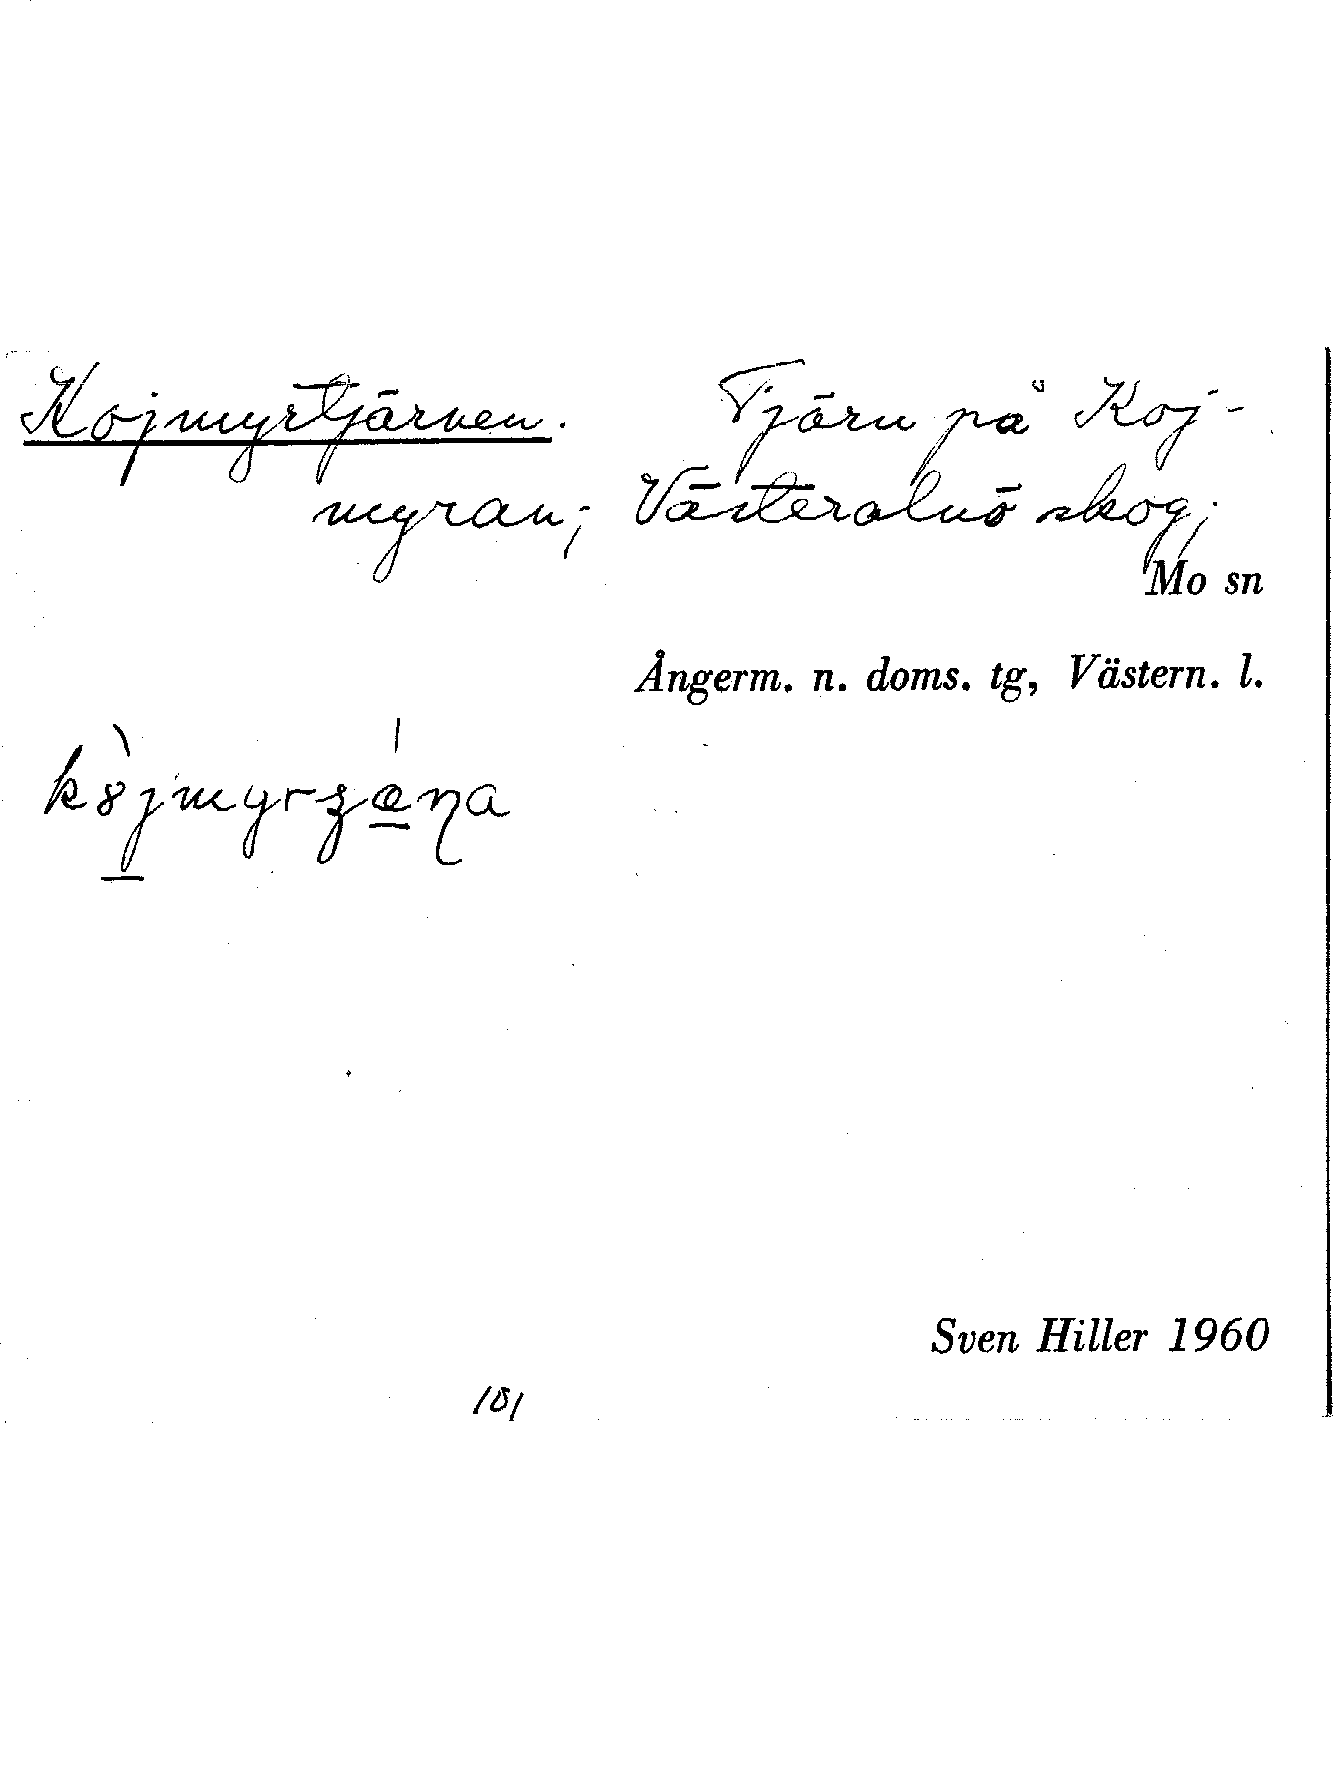 Kojmyrtjärnen. Tjärn på Koj-
myran; Västeralnö skog;
Mo sn
Ångerm. n. doms. tg, Västern. l.
Sven Hiller 1960
101